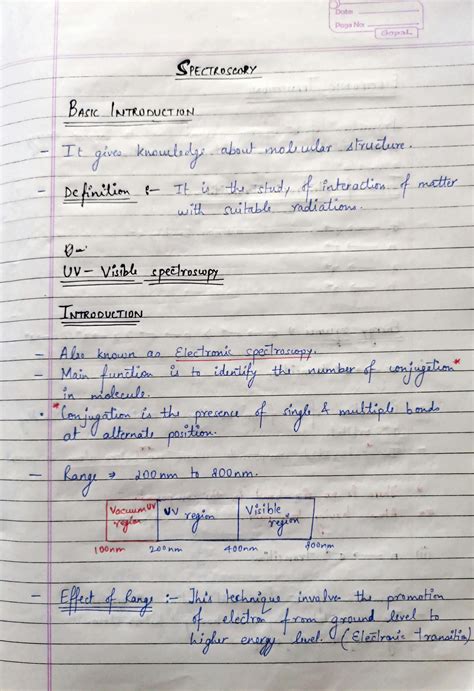 Date:
Page No:
SPECTROSCOPY
BASIC INTRODUCTION
- It gives knowledge about molecular structure.
- Definition :- It is the study of interaction of matter
with suitable radiations.
UV - Visible spectroscopy
INTRODUCTION
- Also known as Electronic spectroscopy.
- Main function is to identify the number of conjugation*
in molecule.
• *Conjugation is the presence of single & multiple bonds
at alternate position.
- Range → 200nm to 800nm.
Vacuum UV region UV region Visible region
100nm 200nm 400nm 800nm
- Effect of Range :- This technique involve the promotion
of electron from ground level to
higher energy level. (Electronic transition)